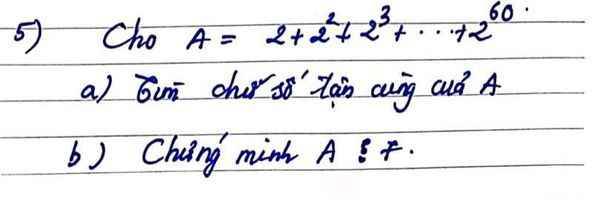 5) Cho A = 2+2²+2³+...+2⁶⁰.
a) Tìm chữ số tận cùng của A
b) Chứng minh A ⋮ 7.